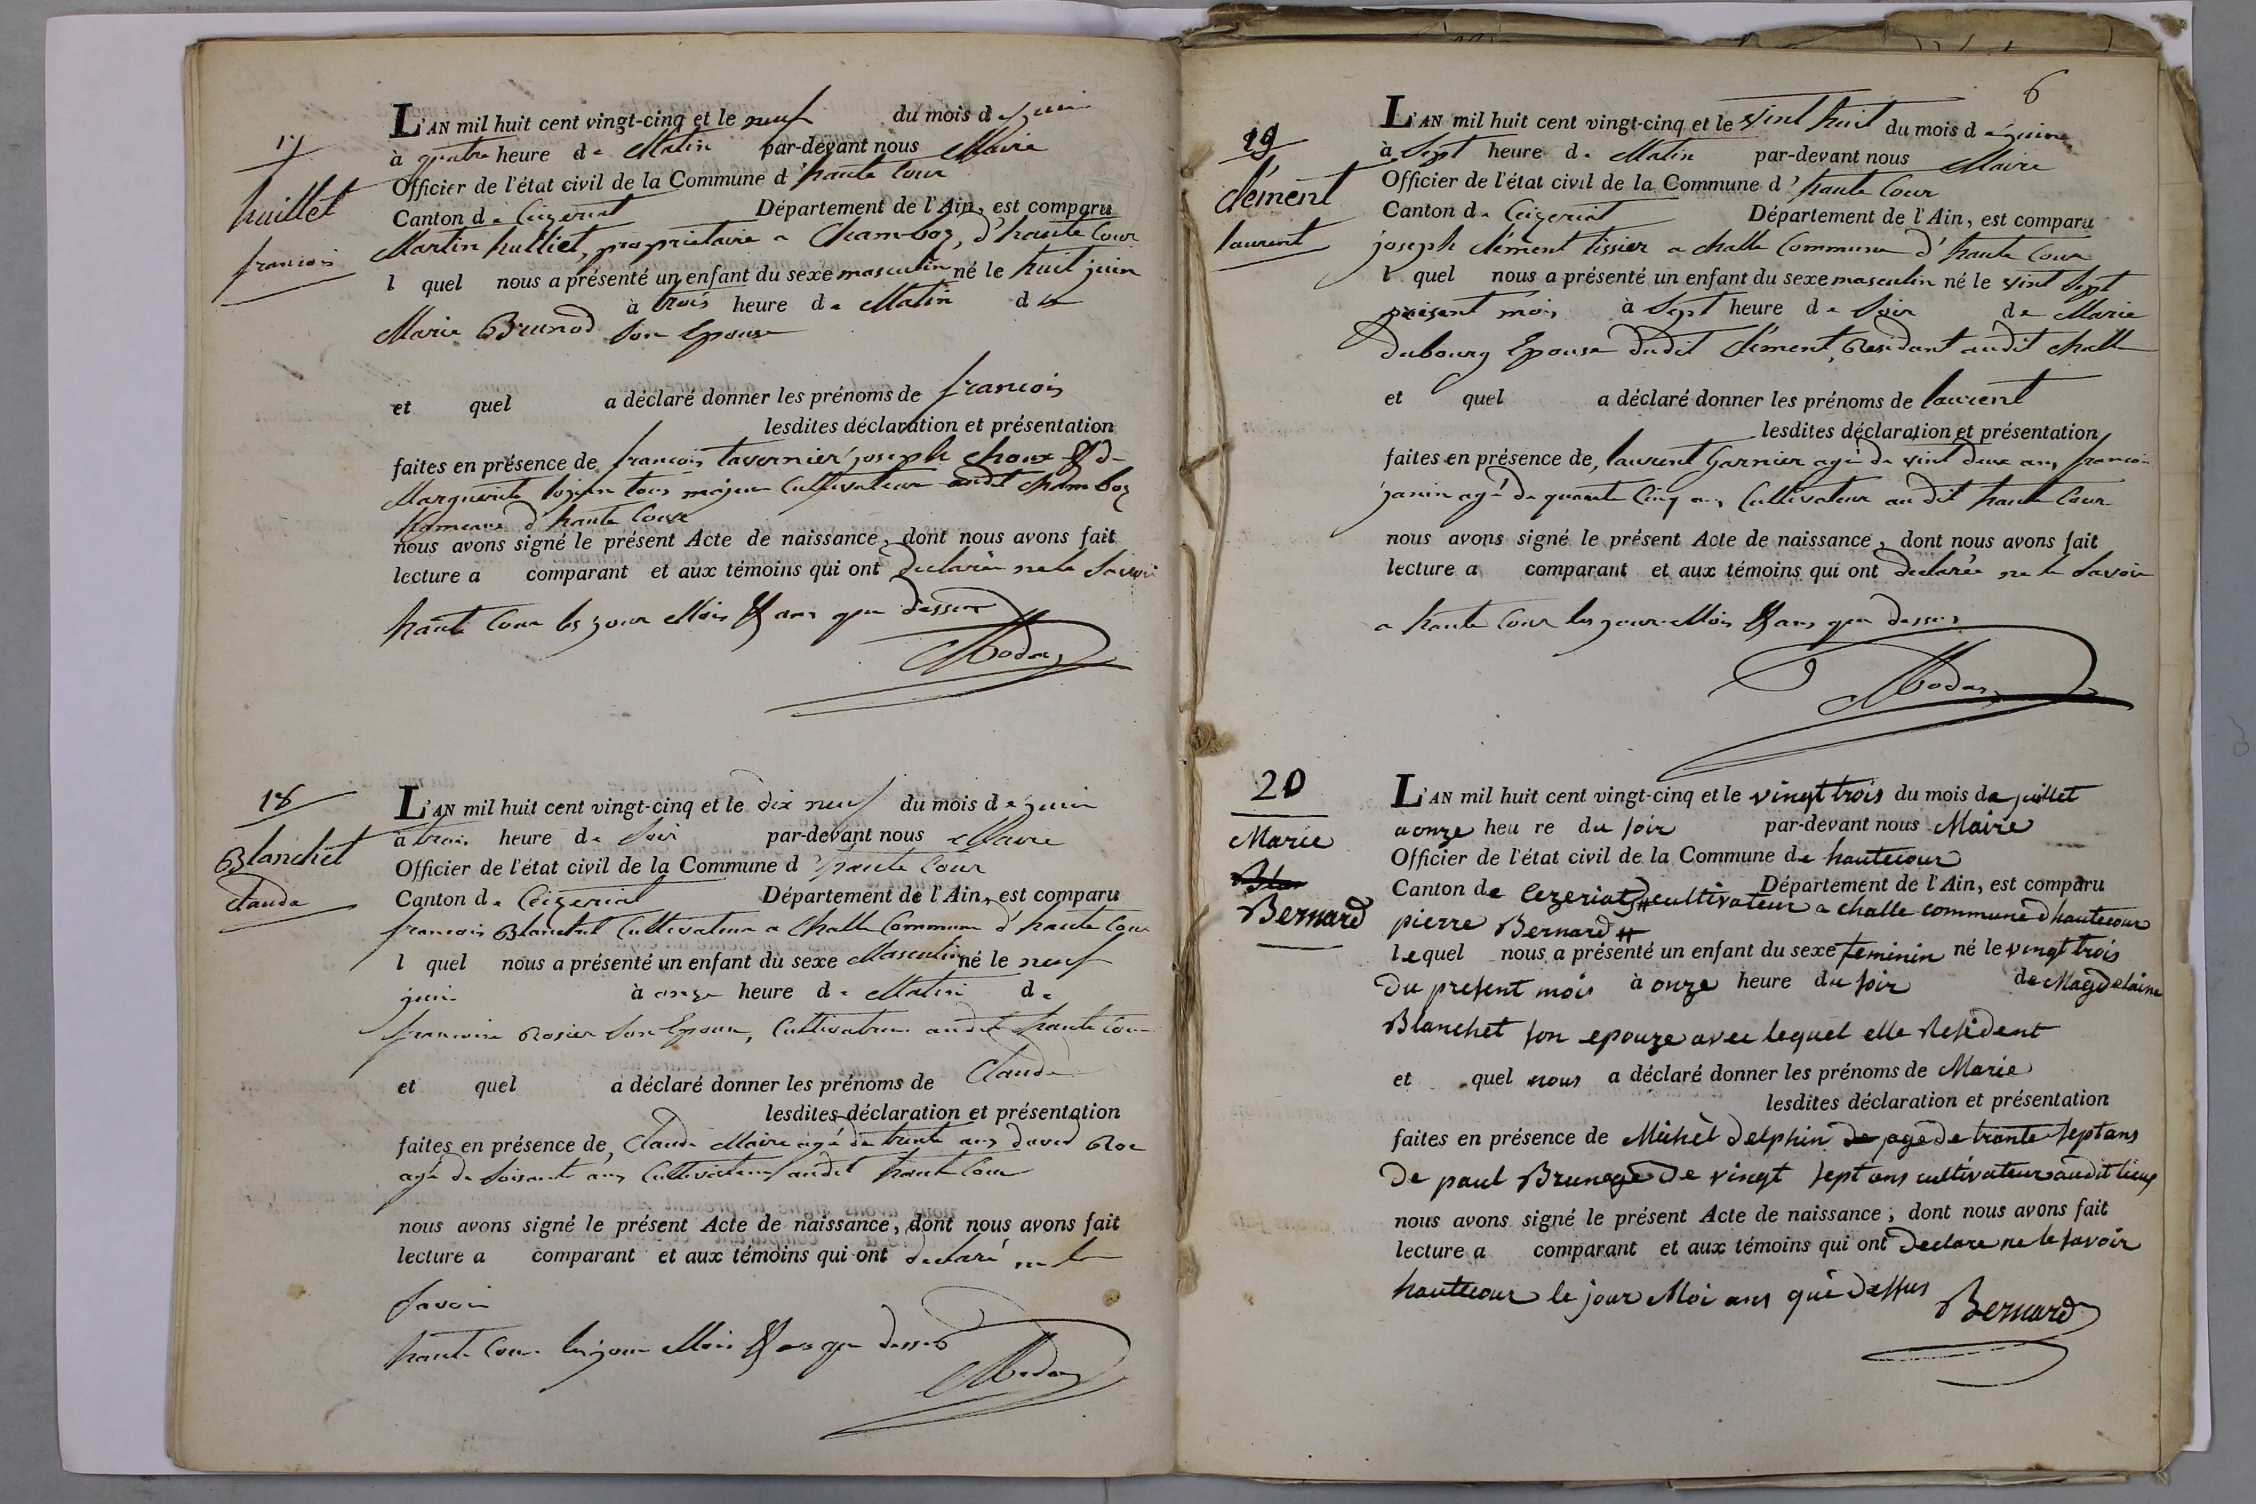 17
huillet
francois
L'AN mil huit cent vingt-cinq et le neuf du mois de juin
à quatre heure de Matin par-devant nous Maire
Officier de l'état civil de la Commune d'haute Cour
Canton de Ceizeriat Département de l'Ain, est comparu
Martin hulliet, proprietaire a Chamboz, d'haute Cour
l quel nous a présenté un enfant du sexe masculin né le huit juin
à trois heure de Matin de
Marie Brunod son Epouse
et quel a déclaré donner les prénoms de francois
lesdites déclaration et présentation
faites en présence de francois tavernier joseph Choux & de
Marguerite tous majeur Cultivateur audit Chamboz
hameaux d'haute Cour
nous avons signé le présent Acte de naissance, dont nous avons fait
lecture a comparant et aux témoins qui ont declarée ne le savoir
haute Cour les jour Mois & ans que dessus
18
Blanchet
Claude
L'AN mil huit cent vingt-cinq et le dix neuf du mois de juin
à trois heure de Soir par-devant nous Maire
Officier de l'état civil de la Commune d'haute Cour
Canton de Ceizeriat Département de l'Ain, est comparu
francois Blanchet Cultivateur a Challe Commune d'haute Cour
l quel nous a présenté un enfant du sexe Masculin né le neuf
juin à onze heure de Matin de
francoise Rosier son Epouse, Cultivatrice audit haute Cour
et quel a déclaré donner les prénoms de Claude
lesdites déclaration et présentation
faites en présence de Claude Maire agé de trente ans david Roc
agé de soisante ans Cultivateur audit haute Cour
nous avons signé le présent Acte de naissance, dont nous avons fait
lecture a comparant et aux témoins qui ont declaré ne le
savoir
haute Cour les jour Mois & ans que dessus
6
19
Clément
laurent
L'AN mil huit cent vingt-cinq et le vint huit du mois de juin
à Sept heure de Matin par-devant nous Maire
Officier de l'état civil de la Commune d'haute Cour
Canton de Ceizeriat Département de l'Ain, est comparu
joseph Clément tissier a Challe Commune d'haute Cour
l quel nous a présenté un enfant du sexe masculin né le vint Sept
présent mois à Sept heure de Soir de Marie
dubourg Epouse dudit Clément, Residant audit Challe
et quel a déclaré donner les prénoms de laurent
lesdites déclaration et présentation
faites en présence de laurent Garnier agé de vint deux ans francois
janin agé de quarante Cinq ans Cultivateur audit haute Cour
nous avons signé le présent Acte de naissance, dont nous avons fait
lecture a comparant et aux témoins qui ont declarée ne le savoir
a haute Cour les jour Mois & ans que dessus
20
Marie
Blan
Bernard
L'AN mil huit cent vingt-cinq et le vingt trois du mois de juillet
a onze heu re du soir par-devant nous Maire
Officier de l'état civil de la Commune de hautecour
Canton de Cezeriat cultivateur a challe commune dhautecour Département de l'Ain, est comparu
pierre Bernard #
lequel nous a présenté un enfant du sexe feminin né le vingt trois
du present mois à onze heure du soir de Magdelaine
Blanchet son epouze avec lequel elle Resident
et quel nous a déclaré donner les prénoms de Marie
lesdites déclaration et présentation
faites en présence de Michel delphin de agé de trante sept ans
de paul Brun agé de vingt sept ans cultivateur audit lieux
nous avons signé le présent Acte de naissance, dont nous avons fait
lecture a comparant et aux témoins qui ont declare ne le savoir
hautecour le jour Moi ans que dessus
Bernard